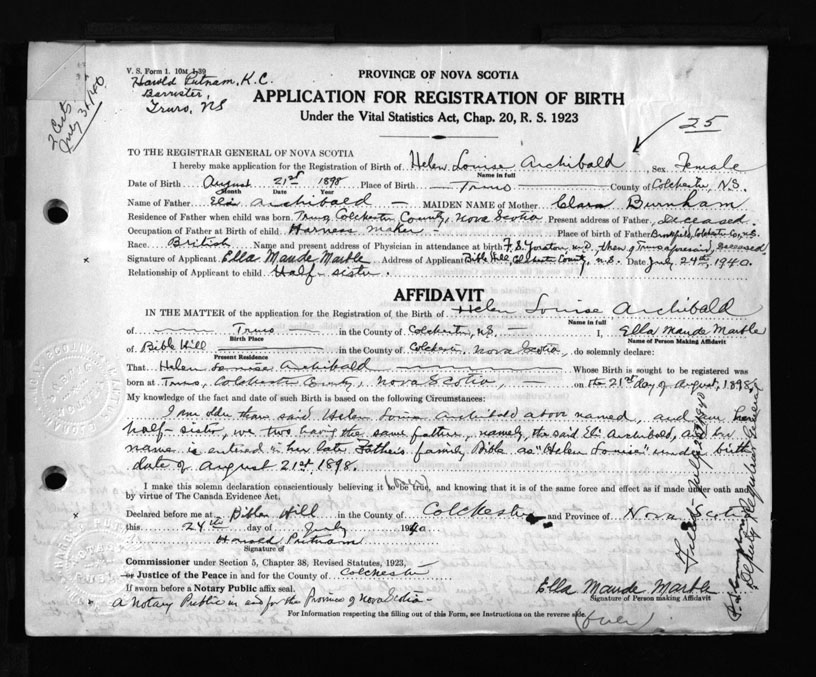 V. S. Form 1. 10M 1-39
Harold Putnam, K.C.
Barrister,
Truro, NS
2 Certs
July 31/40
PROVINCE OF NOVA SCOTIA
APPLICATION FOR REGISTRATION OF BIRTH
Under the Vital Statistics Act, Chap. 20, R. S. 1923
25
TO THE REGISTRAR GENERAL OF NOVA SCOTIA
I hereby make application for the Registration of Birth of Helen Louise Archibald Sex Female
Name in full
Date of Birth August 21st 1898 Place of Birth — Truro — County of Colchester, N.S.
Month Date Year
Name of Father Eli Archibald — MAIDEN NAME of Mother Clara Burnham
Residence of Father when child was born Truro, Colchester County, Nova Scotia Present address of Father, Deceased.
Occupation of Father at Birth of child Harness maker - Place of birth of Father Brookfield, Colchester Co., N.S.
Race British Name and present address of Physician in attendance at birth F. S. Yorston, M.D., then of Truro, deceased
Signature of Applicant Ella Maude Marble Address of Applicant Bible Hill, Colchester County, N.S. Date July 24th, 1940.
Relationship of Applicant to child Half-sister.
AFFIDAVIT
IN THE MATTER of the application for the Registration of Birth of Helen Louise Archibald
Name in full
of — Truro — in the County of Colchester, N.S. — I, Ella Maude Marble
Birth Place Name of Person Making Affidavit
of Bible Hill — in the County of Colchester, Nova Scotia, do solemnly declare:
Present Residence
That Helen Louise Archibald — Whose Birth is sought to be registered was
born at Truro, Colchester County, Nova Scotia, — on the 21st day of August, 1898.
My knowledge of the fact and date of such Birth is based on the following Circumstances:
I am older than said Helen Louise Archibald above named, and am her
half-sister, we two having the same father, namely, the said Eli Archibald, and her
name is entered in her late Father's family Bible as "Helen Louise" under birth
date of August 21st 1898.
I make this solemn declaration conscientiously believing it to be true, and knowing that it is of the same force and effect as if made under oath and
by virtue of The Canada Evidence Act.
Declared before me at Bible Hill in the County of Colchester and Province of Nova Scotia
this 24th day of July 1940
Harold Putnam
Signature of
Commissioner under Section 5, Chapter 38, Revised Statutes, 1923,
or Justice of the Peace in and for the County of Colchester
If sworn before a Notary Public affix seal.
A Notary Public in and for the Province of Nova Scotia -
Ella Maude Marble
Signature of Person making Affidavit
For Information respecting the filling out of this Form, see Instructions on the reverse side.
(over)
Filed July 1940
Deputy Registrar General